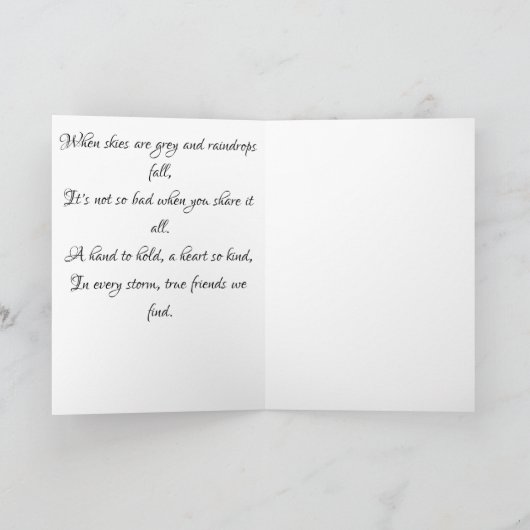 When skies are grey and raindrops
fall,
It's not so bad when you share it
all.
A hand to hold, a heart so kind,
In every storm, true friends we
find.